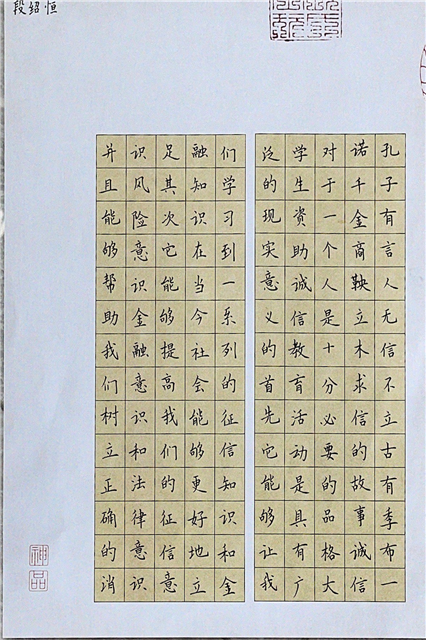 段绍恒
孔子有言人无信不立古有季布一
诺千金商鞅立木求信的故事诚信
对于一个人是十分必要的品格大
学生资助诚信教育活动是具有广
泛的现实意义的首先它能够让我
们学习到一系列的征信知识和金
融知识在当今社会能够更好地立
足其次它能够提高我们的征信意
识风险意识金融意识和法律意识
并且能够帮助我们树立正确的消
神品